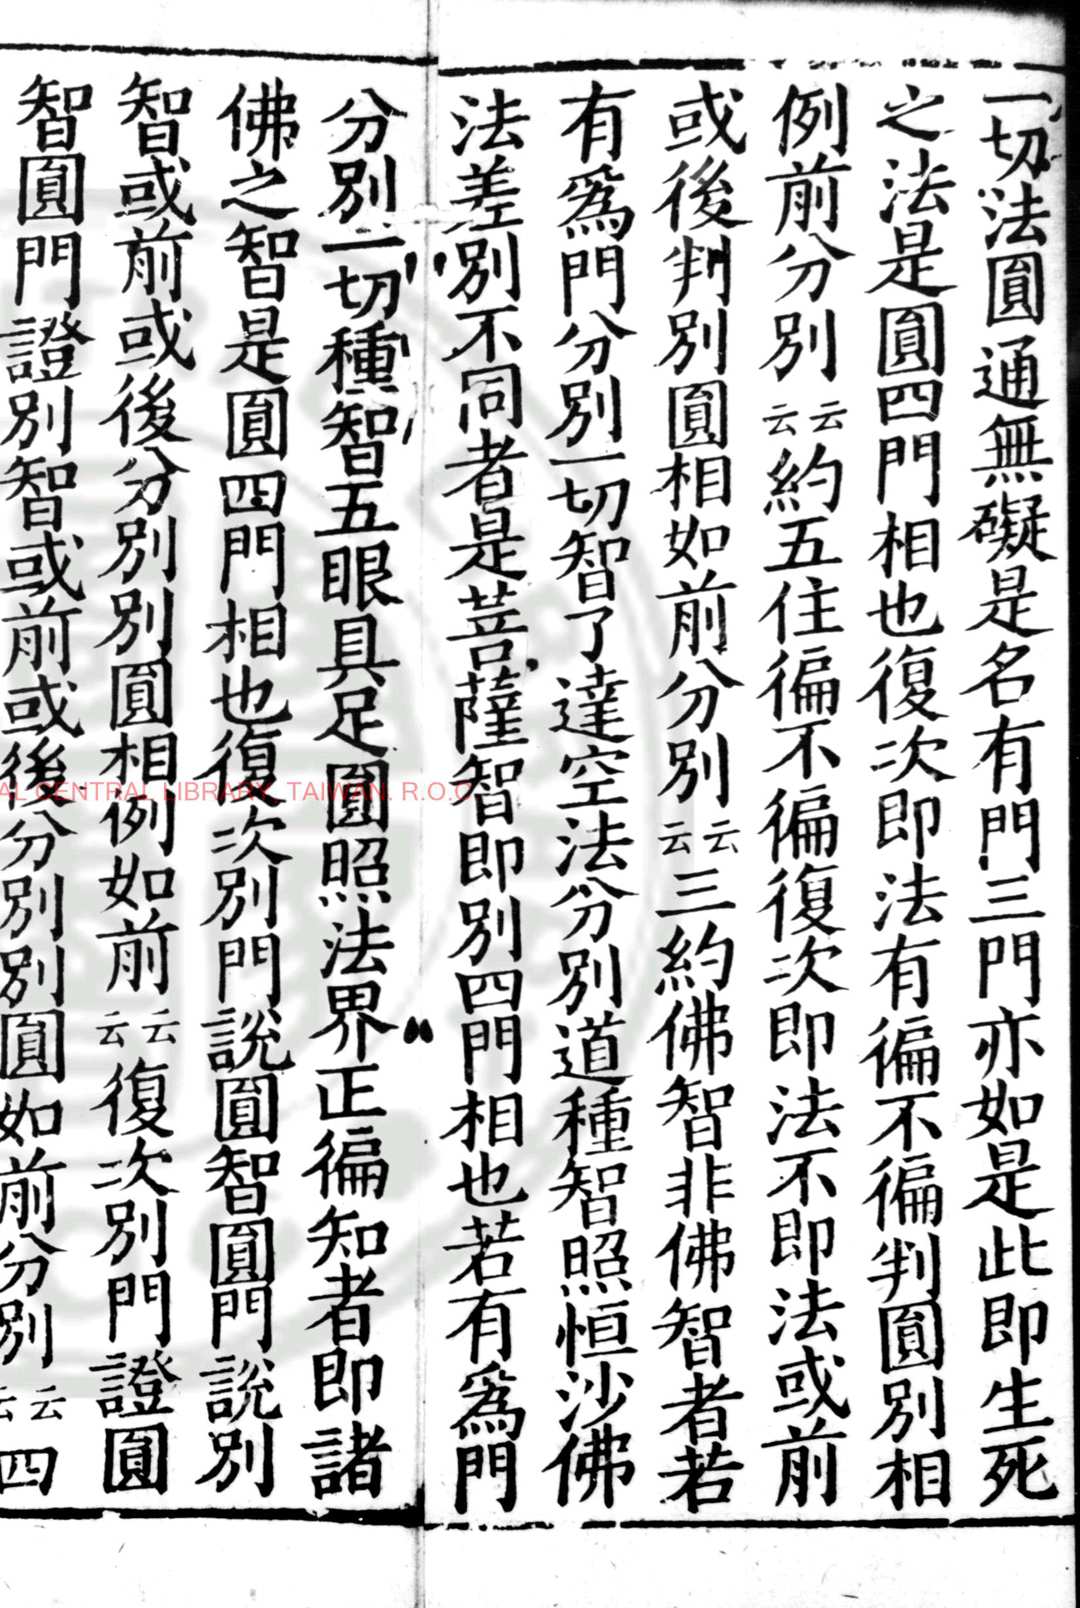 一切法圓通無礙是名有門三門亦如是此即生死
之法是圓四門相也復次即法有徧不徧判圓別相
例前分別云云約五住徧不徧復次即法不即法或前
或後判別圓相如前分別云云三約佛智非佛智者若
有爲門分別一切智了達空法分別道種智照恒沙佛
法差別不同者是菩薩智即別四門相也若有爲門
分別一切種智五眼具足圓照法界正徧知者即諸
佛之智是圓四門相也復次別門說圓智圓門說別
智或前或後分別別圓相例如前云云復次別門證圓
智圓門證別智或前或後分別別圓如前分別云云四
NATIONAL CENTRAL LIBRARY, TAIWAN. R.O.C